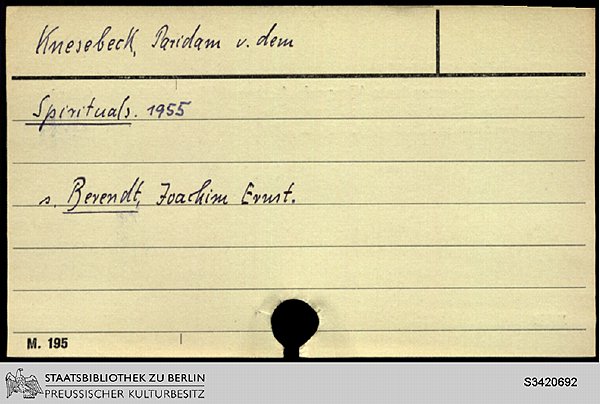 Knesebeck, Paridam v. dem
Spirituals. 1955
s. Berendt, Joachim Ernst.
M. 195
STAATSBIBLIOTHEK ZU BERLIN
PREUSSISCHER KULTURBESITZ
S3420692